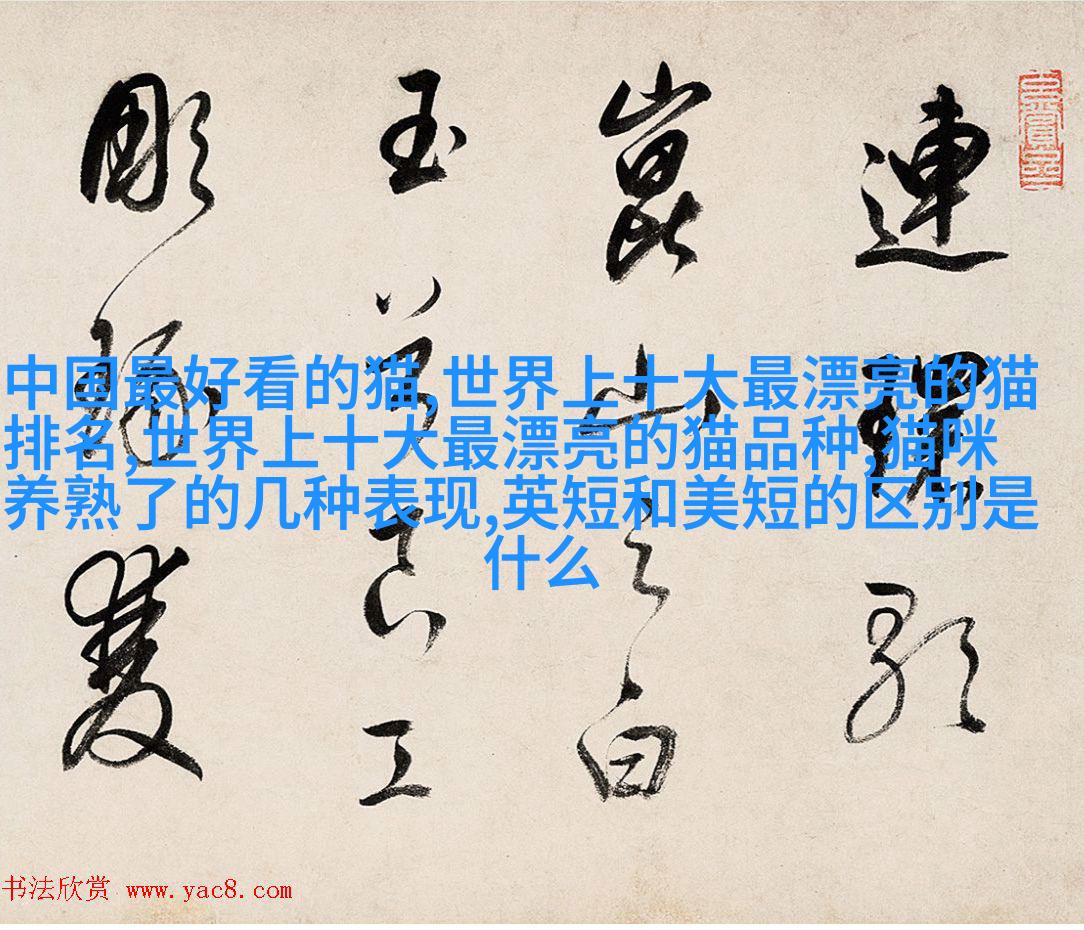 連環歌
崑山之白
玉工
彫琢雙
中国最好看的猫,世界上十大最漂亮的猫
排名,世界上十大最漂亮的猫品种,猫咪
养熟了的几种表现,英短和美短的区别是
什么
书法欣赏 www.yac8.com